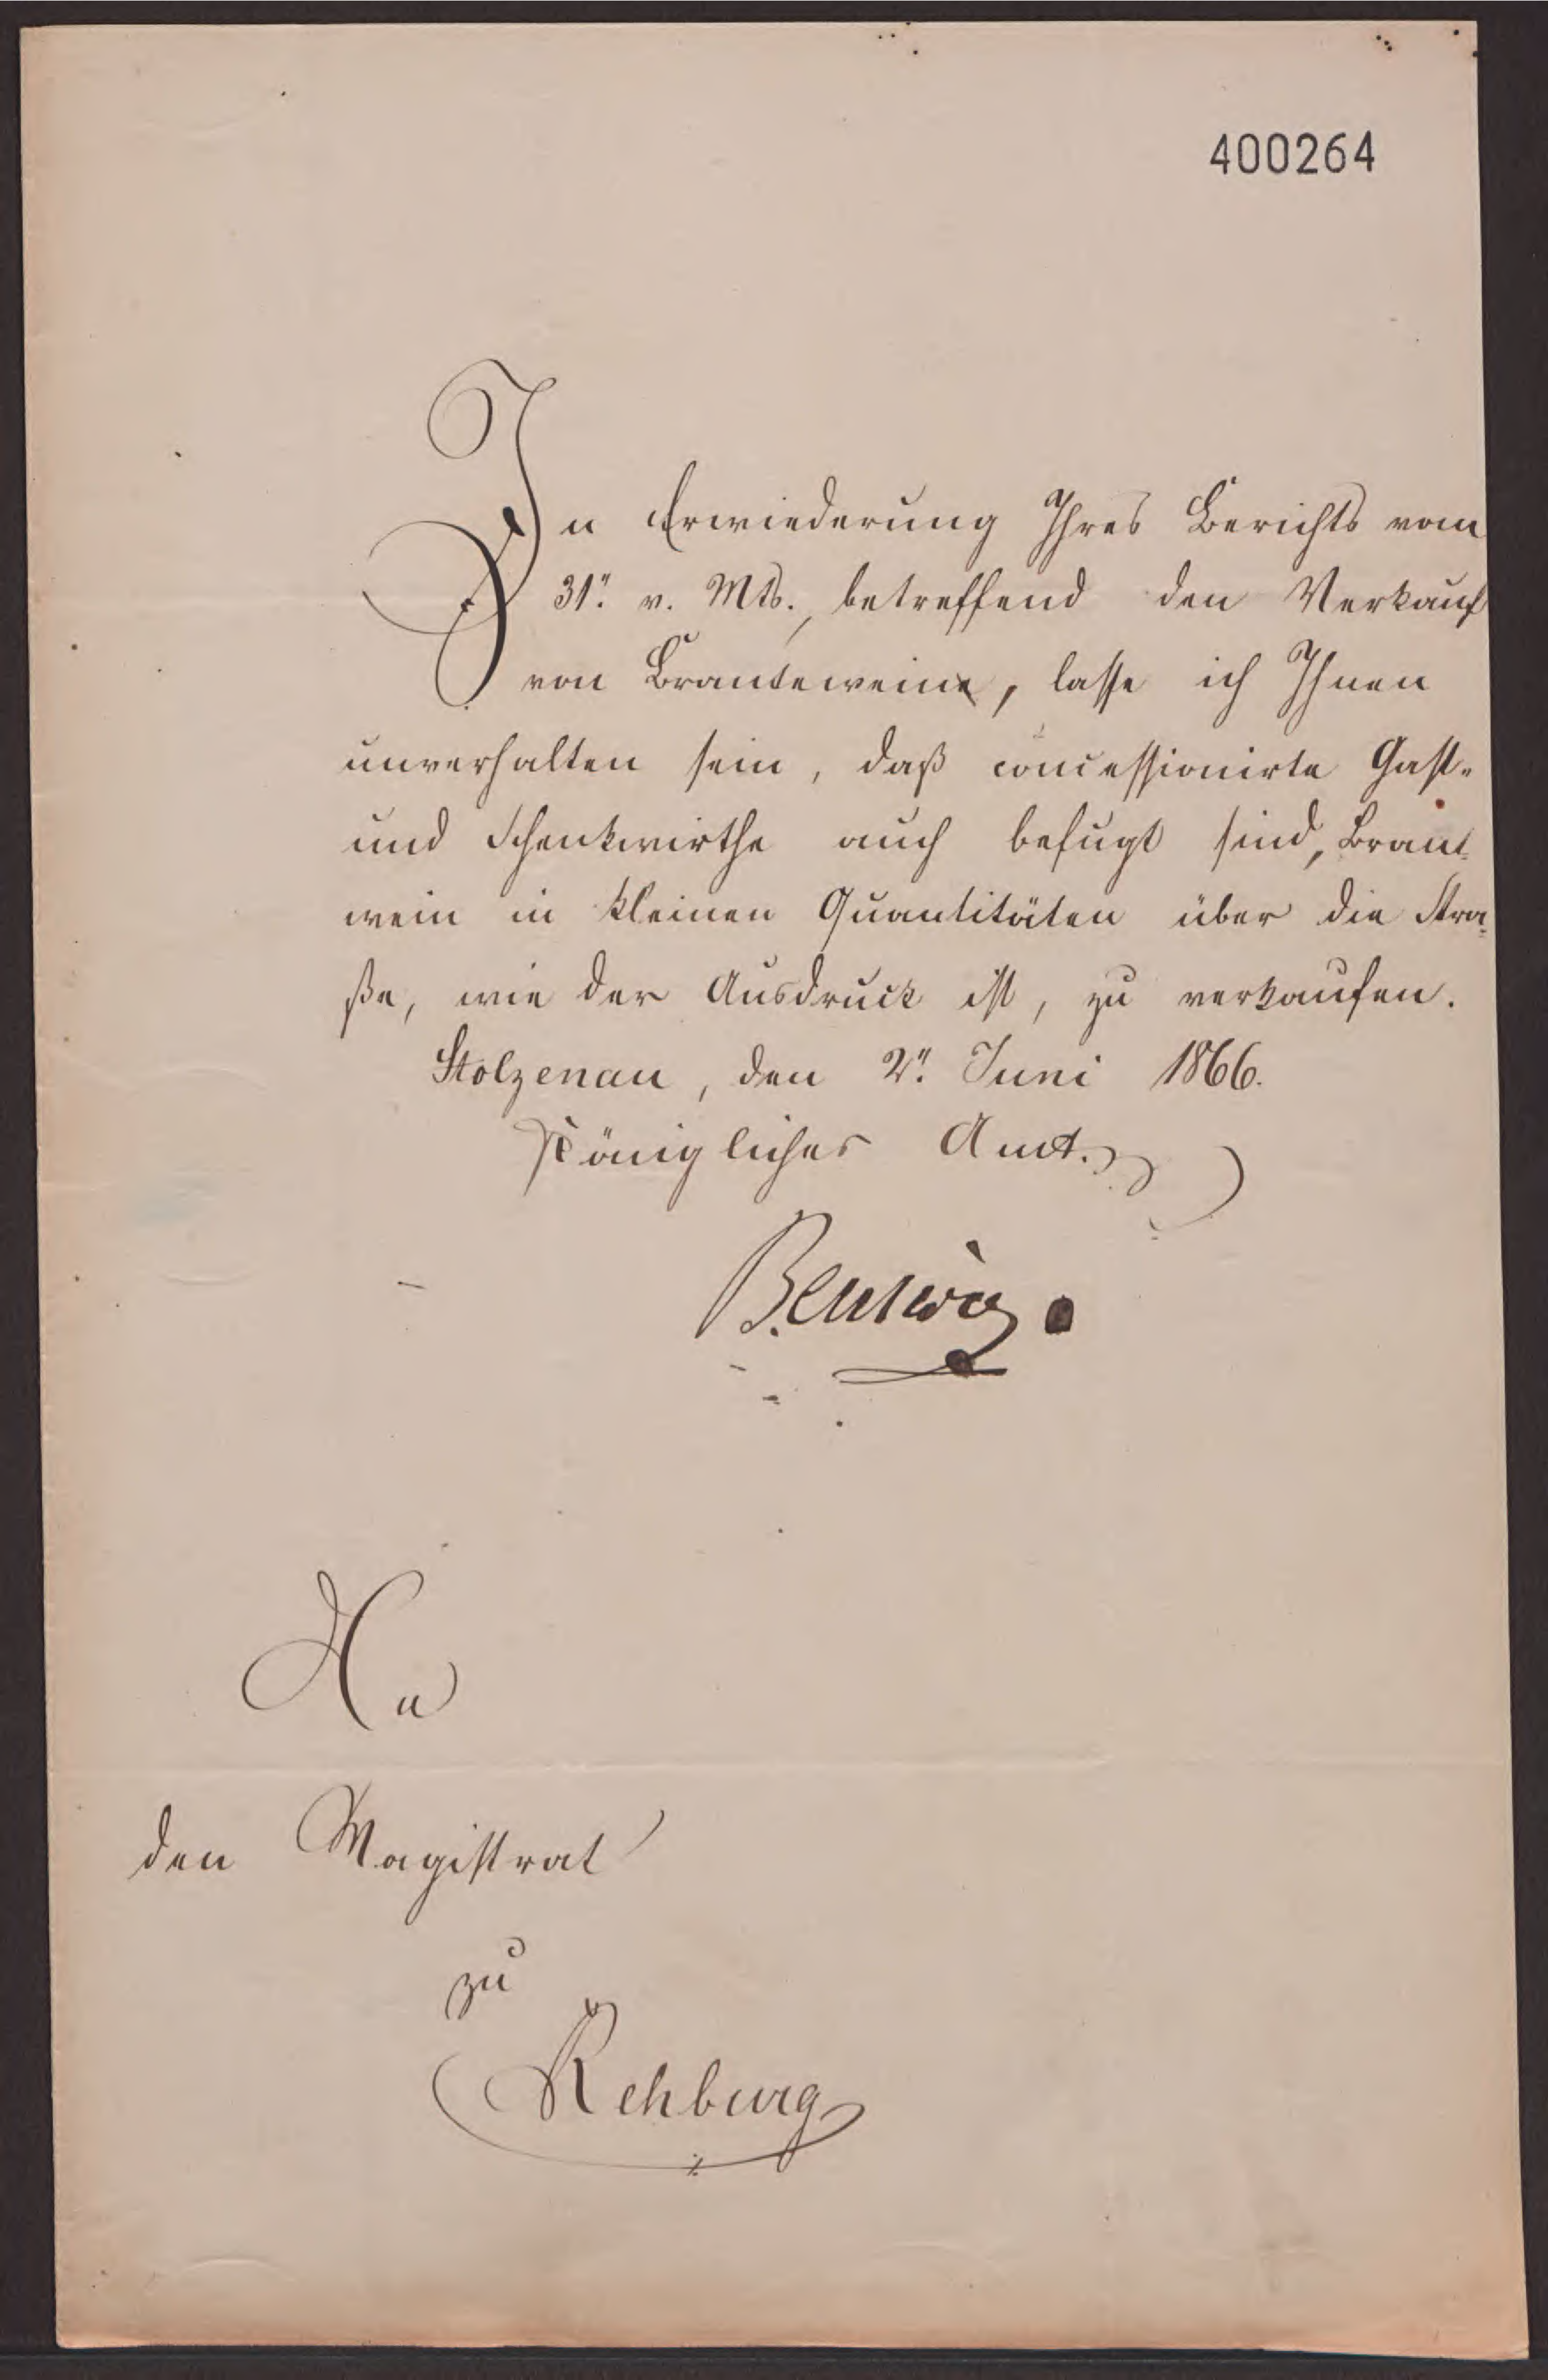 400264
In Erwiederung Ihres Berichts vom
31". v. Mts., betreffend den Verkauf
von Branteweine, lasse ich Ihnen
unverhalten sein, daß concessionirte Gast-
und Schenkwirthe auch befugt sind, Brant-
wein in kleinen Quantitäten über die Stra-
ße, wie der Ausdruck ist, zu verkaufen.
Stolzenau, den 2". Juni 1866.
Königliches Amt.
An
den Magistrat
zu
Rehburg